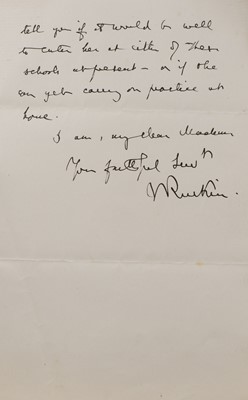 tell you if it would be well
to enter her at either of these
schools at present – or if she
can yet carry on practice at
home.
I am, my dear Madam
Your faithful Servt
J Ruskin.